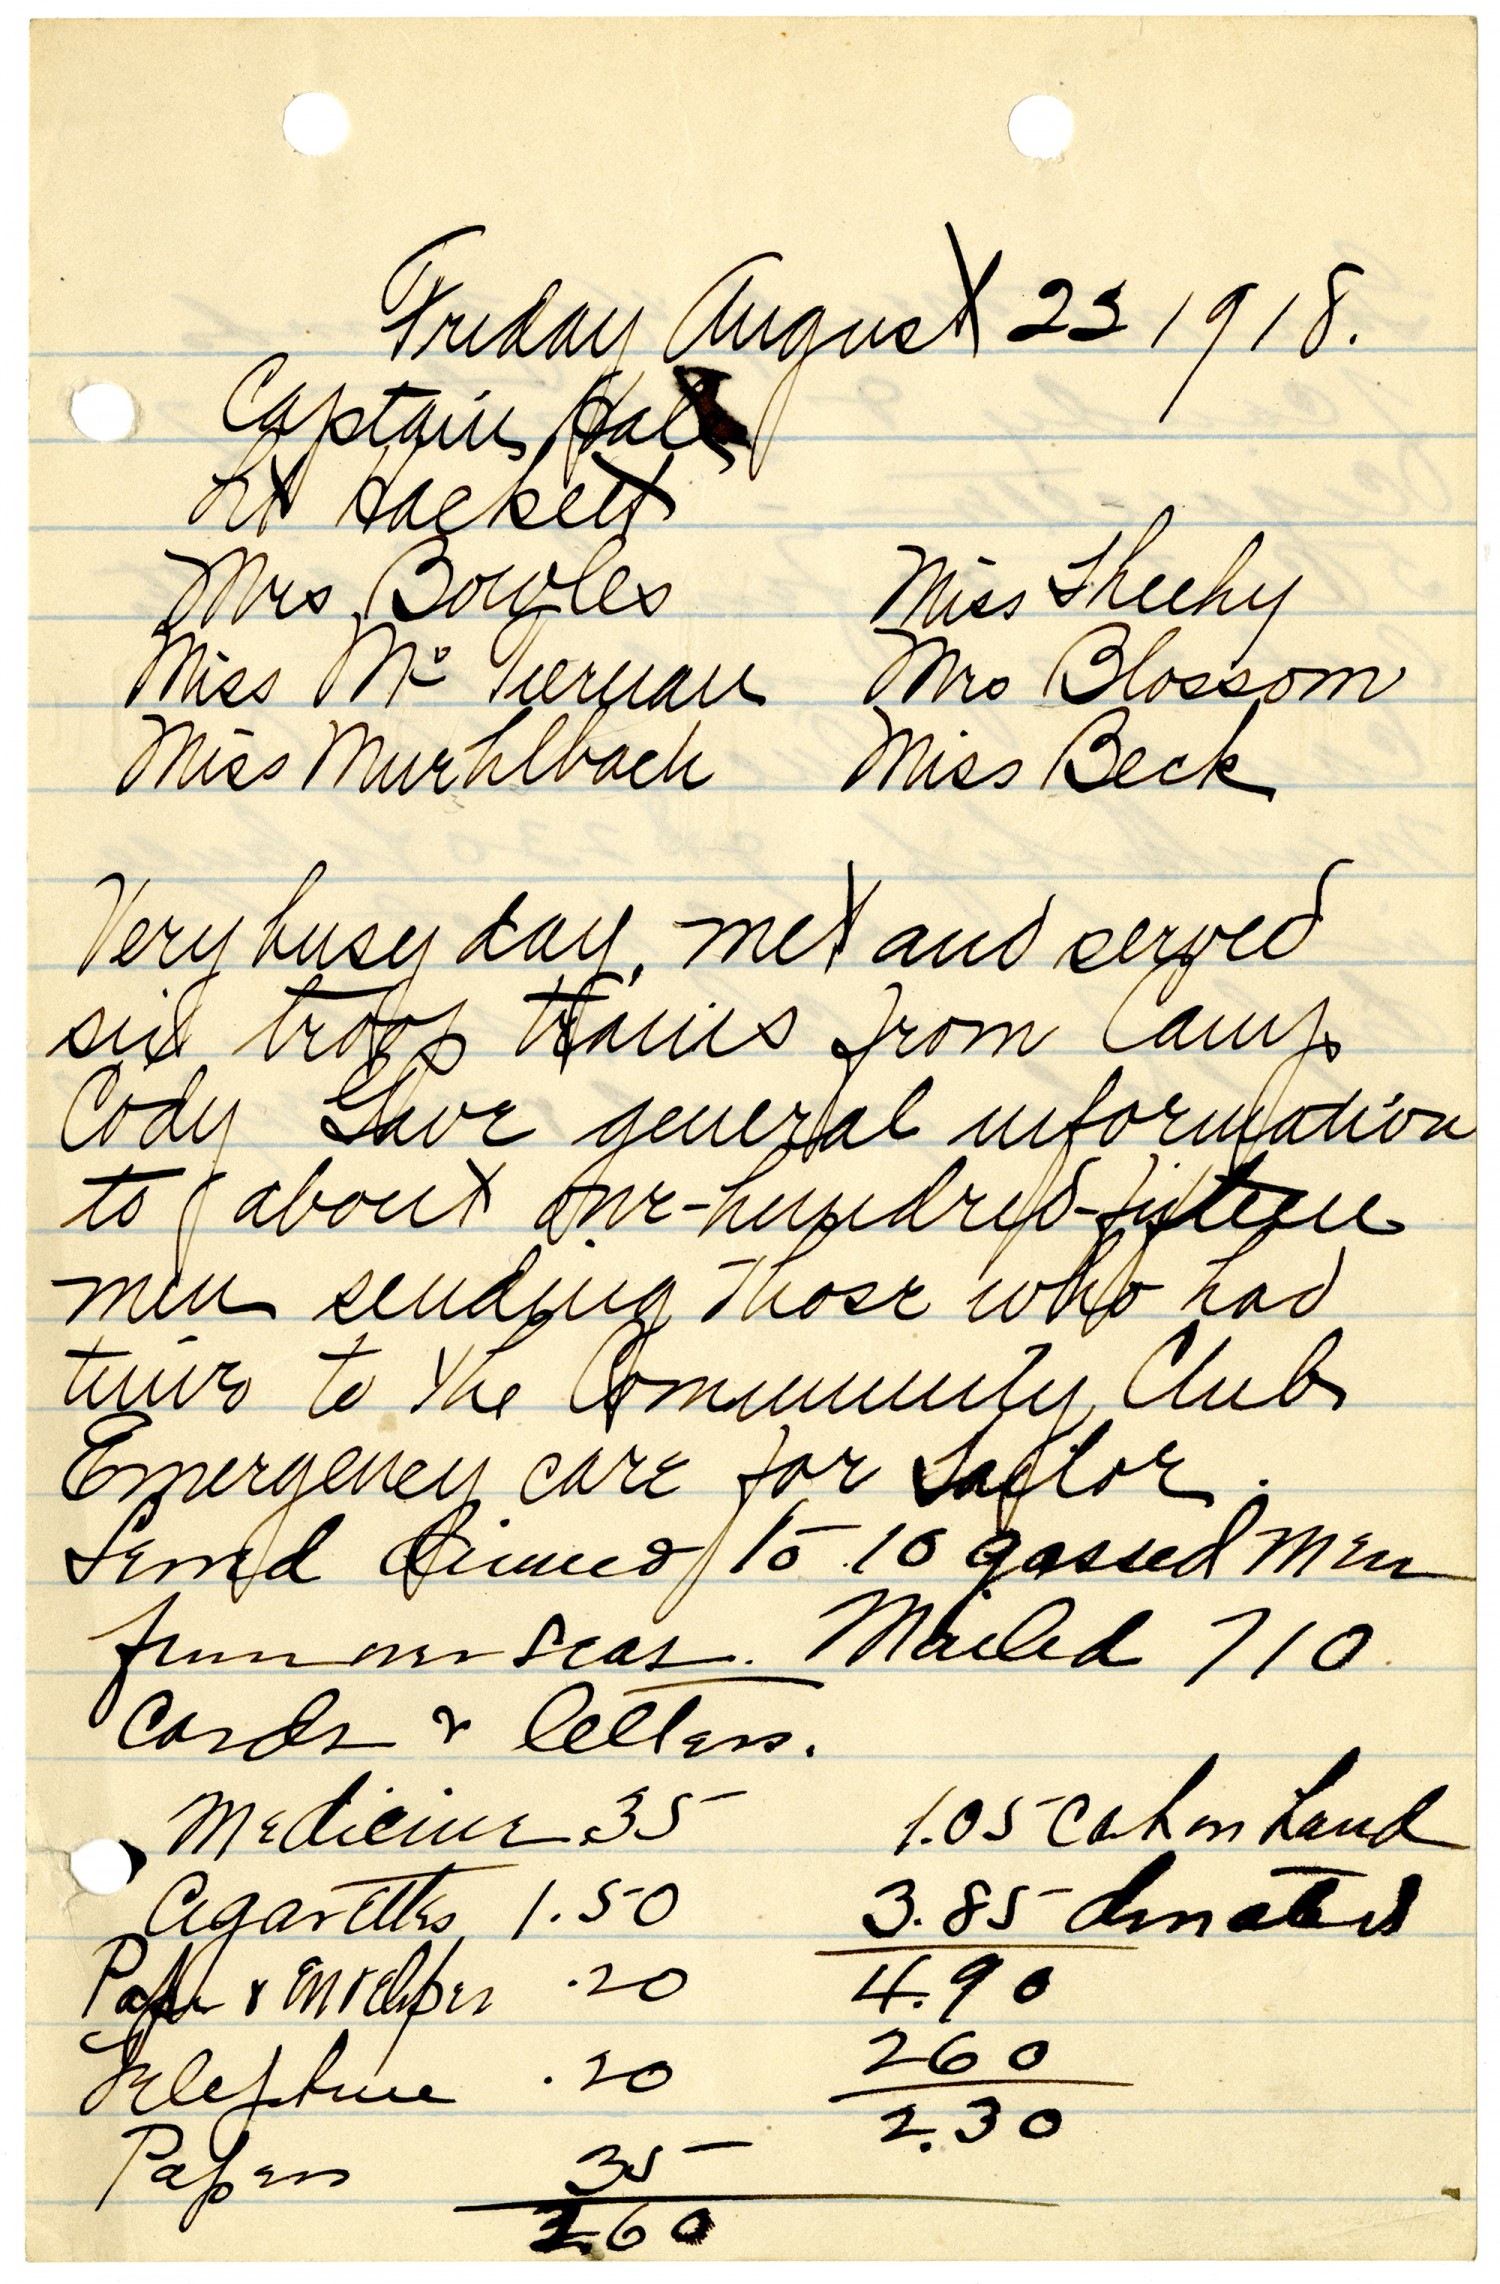 Friday August 23 1918.
Captain Hall
Lt Hackett
Mrs Bowles Miss Sheehy
Miss Mc Tiernan Mrs Blossom
Miss Muehlbach Miss Beck
Very busy day, met and served
six troop trains from Camp
Cody Gave general information
to about one-hundred-fifteen
men sending those who had
time to the Community Club
Emergency care for sailor.
Served dinner to 10 gassed men
from over seas. Mailed 710
cards & letters.
Medicine .35 1.05 cash on hand
Cigarettes 1.50 3.85 donated
Paper & envelopes .20 4.90
Telephone .20 260
Papers 35 2.30
2.60